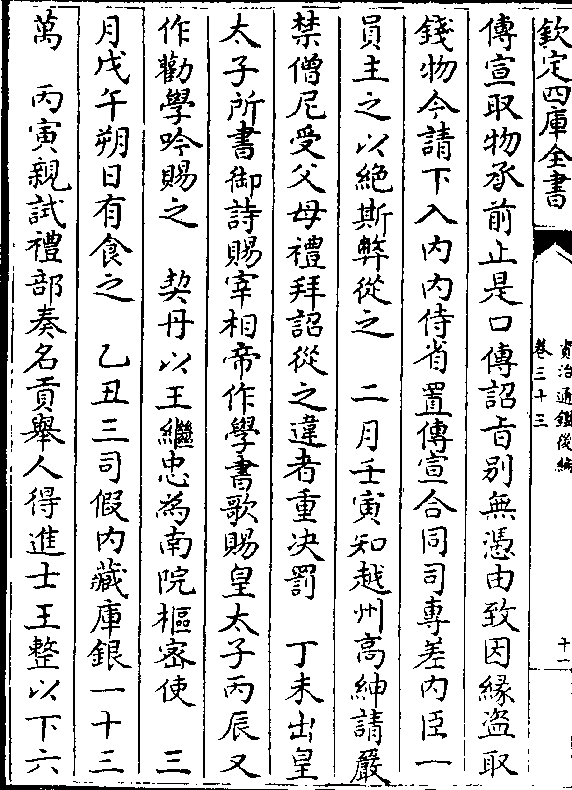 欽定四庫全書
資治通鑑後編
卷三十三
十一
傳宣取物承前止是口傳詔旨別無憑由致因緣盗取
錢物今請下入内内侍省置傳宣合同司專差内臣一
員主之以絶斯弊從之　二月壬寅知越州高紳請嚴
禁僧尼受父母禮拜詔從之違者重决罰　丁未出皇
太子所書御詩賜宰相帝作學書歌賜皇太子丙辰又
作勸學吟賜之　契丹以王繼忠為南院樞密使　三
月戊午朔日有食之　乙丑三司假内藏庫銀一十三
萬　丙寅親試禮部奏名貢舉人得進士王整以下六